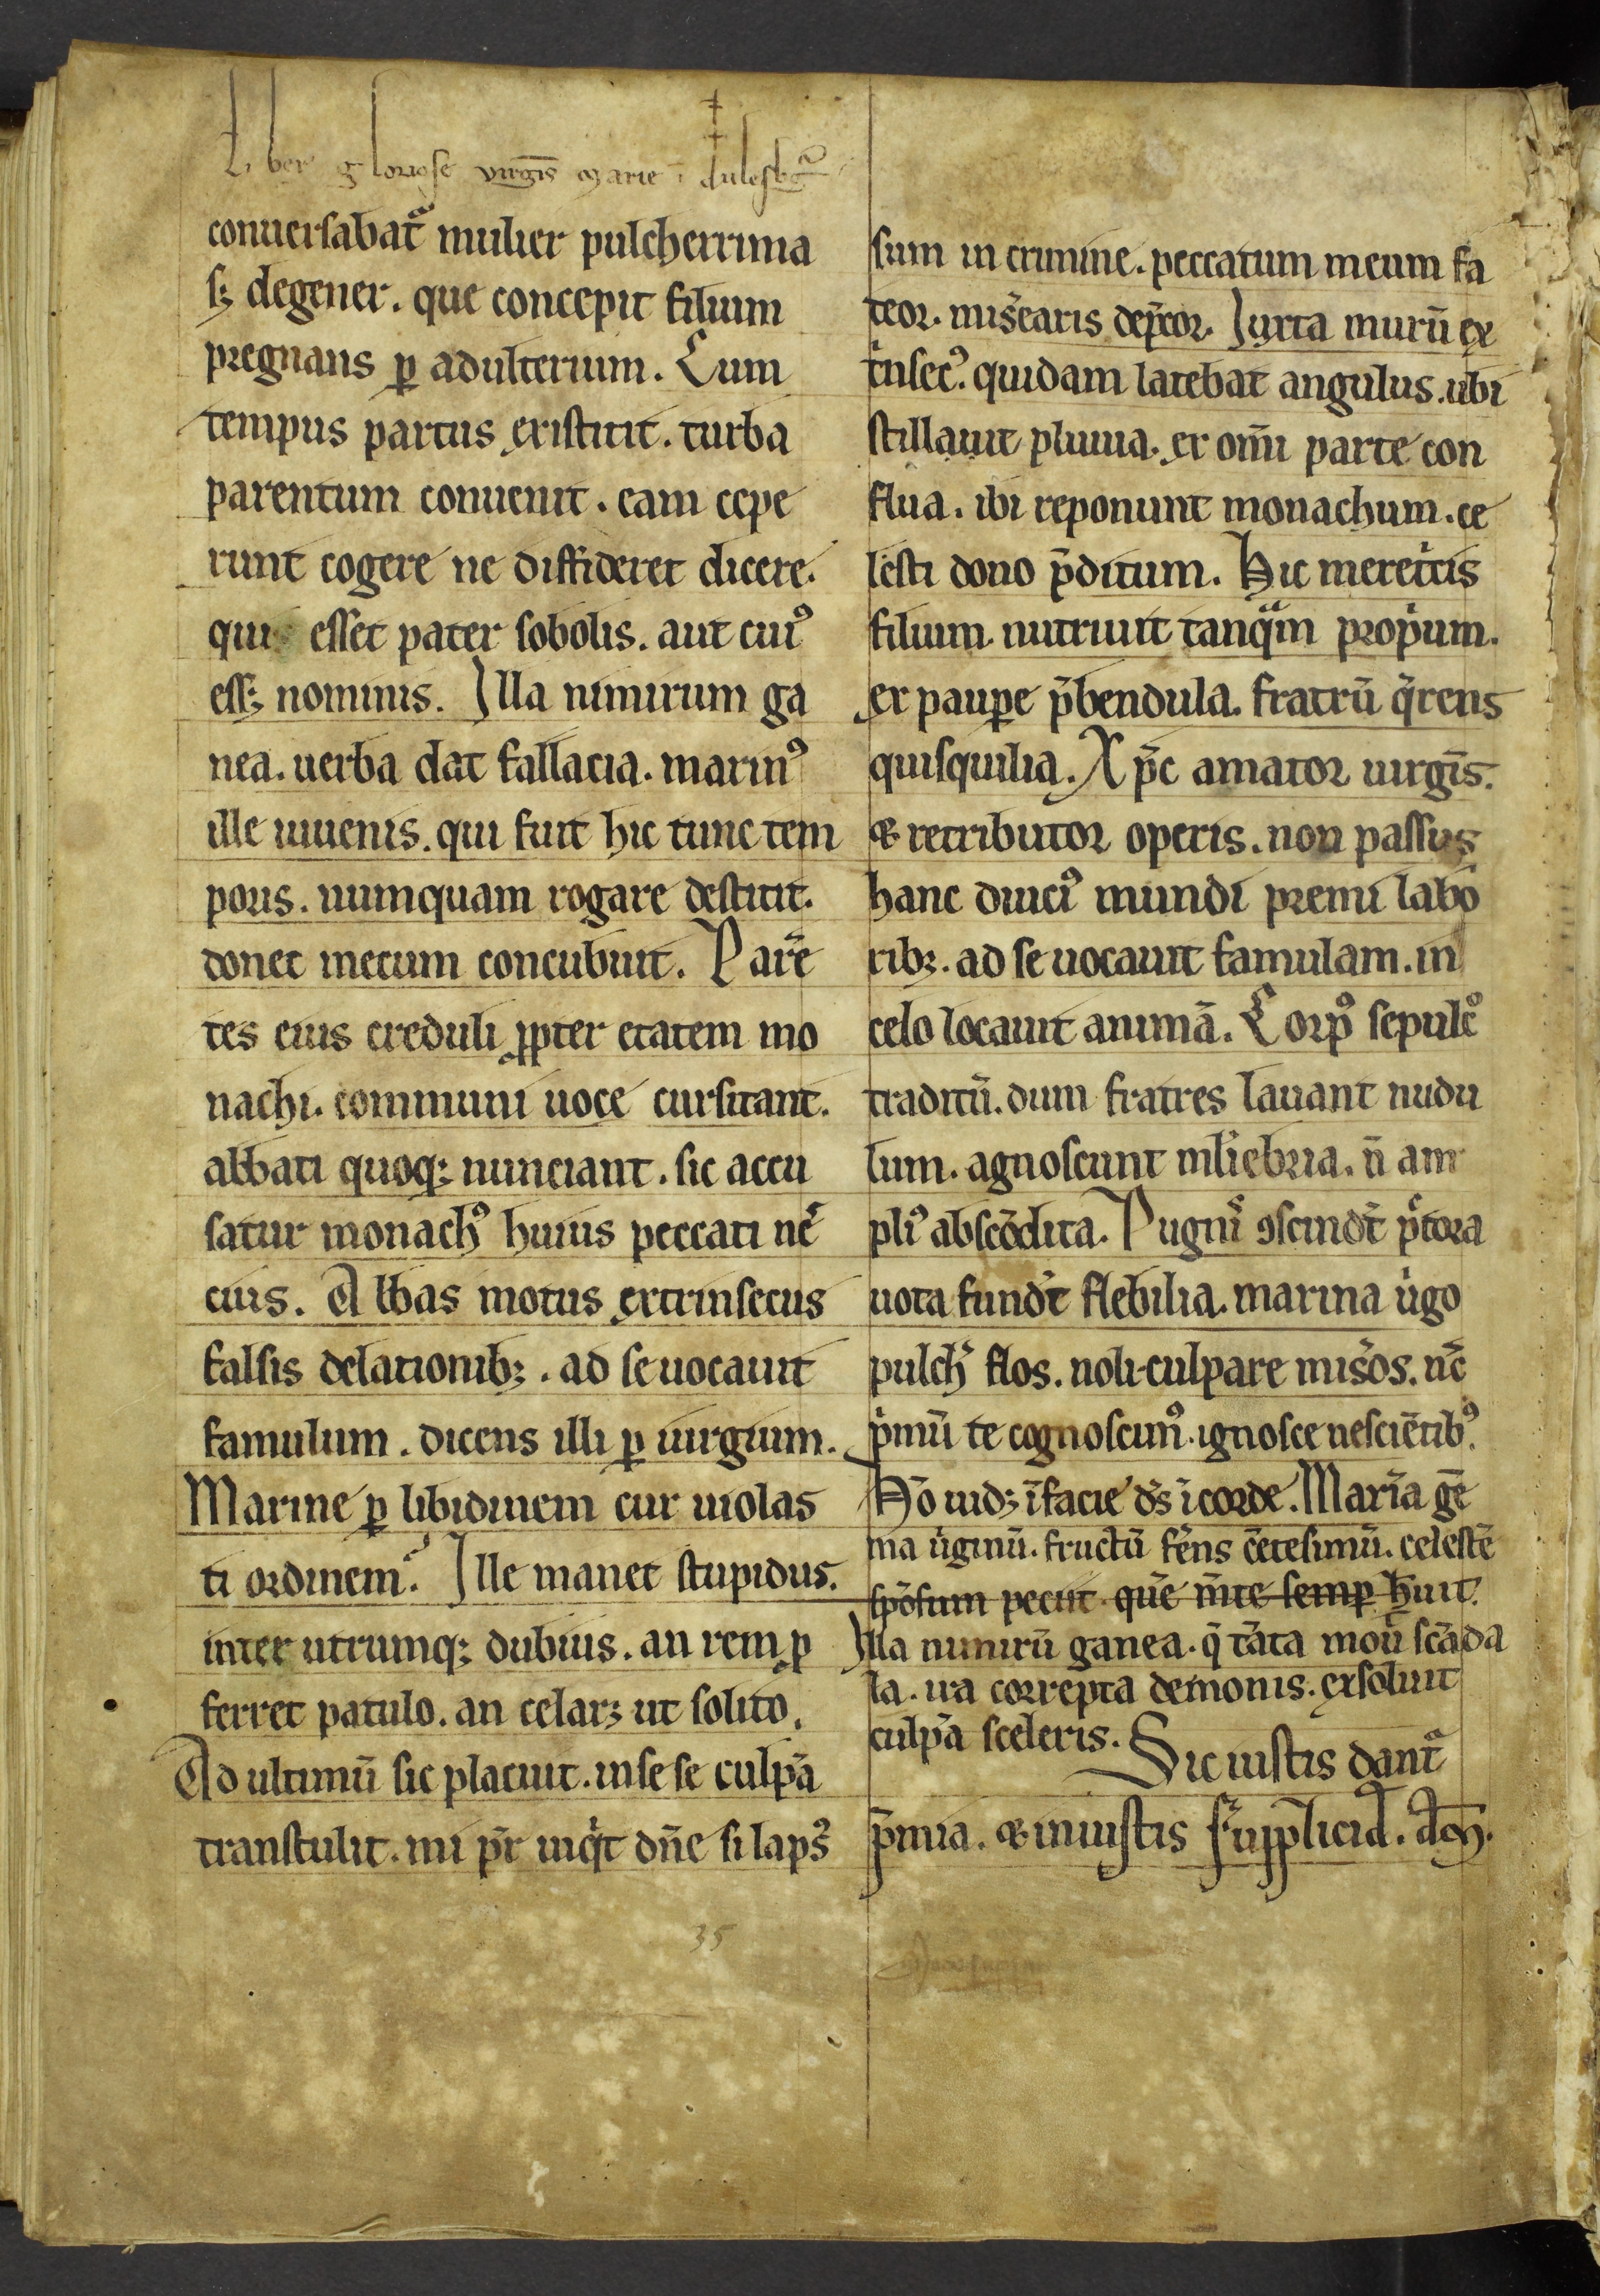 Liber gloriose virgıs̄ marie ī dulesbꝰg
conuersabat᷑ mulier pulcherrima
sꝫ degener. que concepit filium
pregnans ꝑ adulterium. Cum
tempus partus existitit. turba
parentum conuenit. eam cepe
runt cogere ne diffideret dicere.
qui esset pater sobolis. aut cuiꝰ
essꝫ nominis. Illa nimirum ga
nea. uerba dat fallacia. marinꝰ
ille iuuenis. qui fuit hic tunc tem
poris. numquam rogare destitit.
donec mecum concubuit. Parē
tes eius creduli ꝓpter etatem mo
nachi. communi uoce cursitant.
abbati quoqꝫ nunciant. sic accu
satur monachꝰ huius peccati ne᷑
cius. Abbas motus extrinsecus
falsis delationibꝫ. ad se uocauit
famulum. dicens illi ꝑ uirgium.
Marine ꝑ libidinem cur uiolas
ti ordinem? Ille manet stupidus.
inter utrumqꝫ dubius. an rem ꝓ
ferret patulo. an celarꝫ ut solito.
Ad ultimū sic placuit. in se se culpā
transtulit. mi pr̄ inqͥt dn̄e si lapsꝰ
sum in crimine. peccatum meum fa
teor. mis̄earis dep̄cor. Iuxta murū ex
tͥnsecꝰ. quidam latebat angulus. ubi
stillauit pluuia. ex om̄i parte con
flua. ibi reponunt monachum. ce
lesti dono p̄ditum. Hic meret͛cis
filium nutriuit tanqͣm propͥum.
ex pauꝑe p̄bendula. fratrū q̄rens
quisquilia. Xp̄c amator uirgīs.
& retributor operis. non passus
hanc diuciꝰ mundi premi labo
ribꝫ. ad se uocauit famulam. in
celo locauit animā. Corpꝰ sepulcͦ
traditū. dum fratres lauant nudu
lum. agnoscunt mlīebria. n̄ am
pliꝰ abscōdita. Pugnͥ ꝯscindt̄ p̄tora
uota fundt̄ flebilia. marina uͥgo
pulch᷑ flos. noli culpare mis̄os. nc̄
pͥmū te cognoscimꝰ. ignosce nesciētibꝰ.
Hō uidꝫ ī facie ds̄ ī corde. Marīa gē
ma uͥginū. fructū fēns cētesimū. celestē
spōsum peciit quē mīte semꝑ huit.
Illa nimirū ganea. q̄ tāta mouͥ scāda
la. ira correpta demonis. exsoluit
culpā sceleris. Sic iustis dant᷑
p̄mia. & iniustis supplicia. am̄.
35